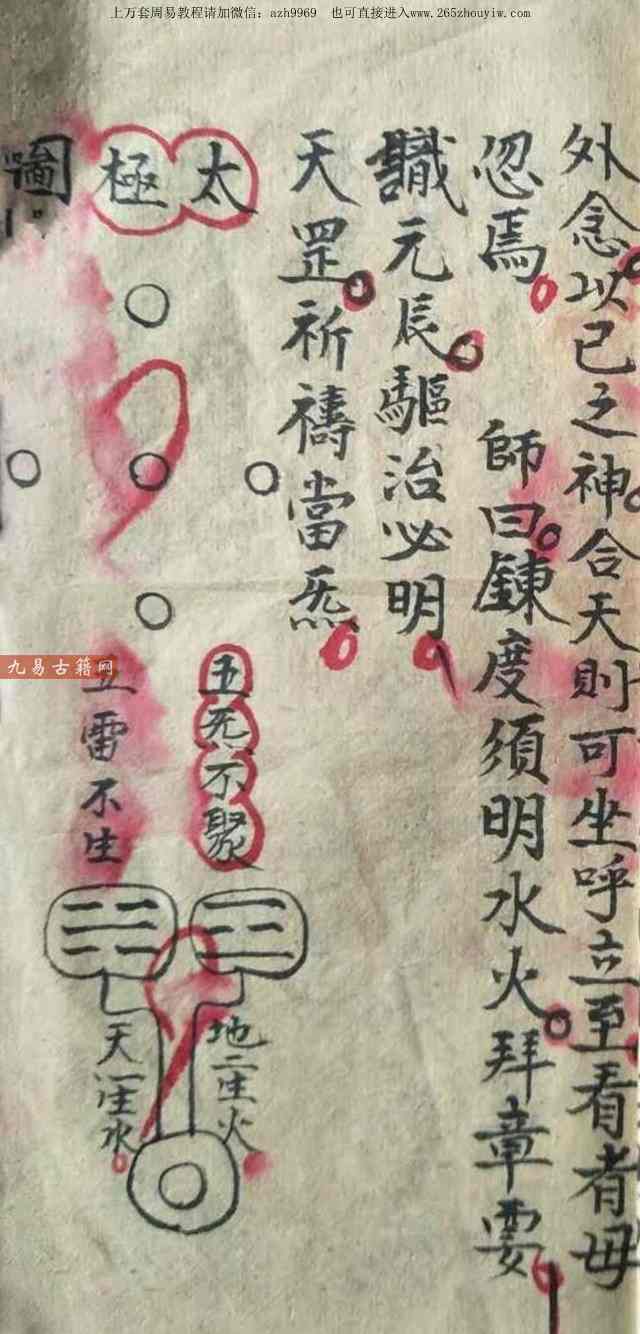 上万套周易教程请加微信：azh9969　也可直接进入www.265zhouyiw.com
外念以已之神合天則可坐呼立至看者毋
忽焉　師曰鍊度須明水火拜章要
識元辰驅治必明
天罡祈禱當炁
太極圖
五炁不聚
五雷不生
地二生火
天一生水
九易古籍网